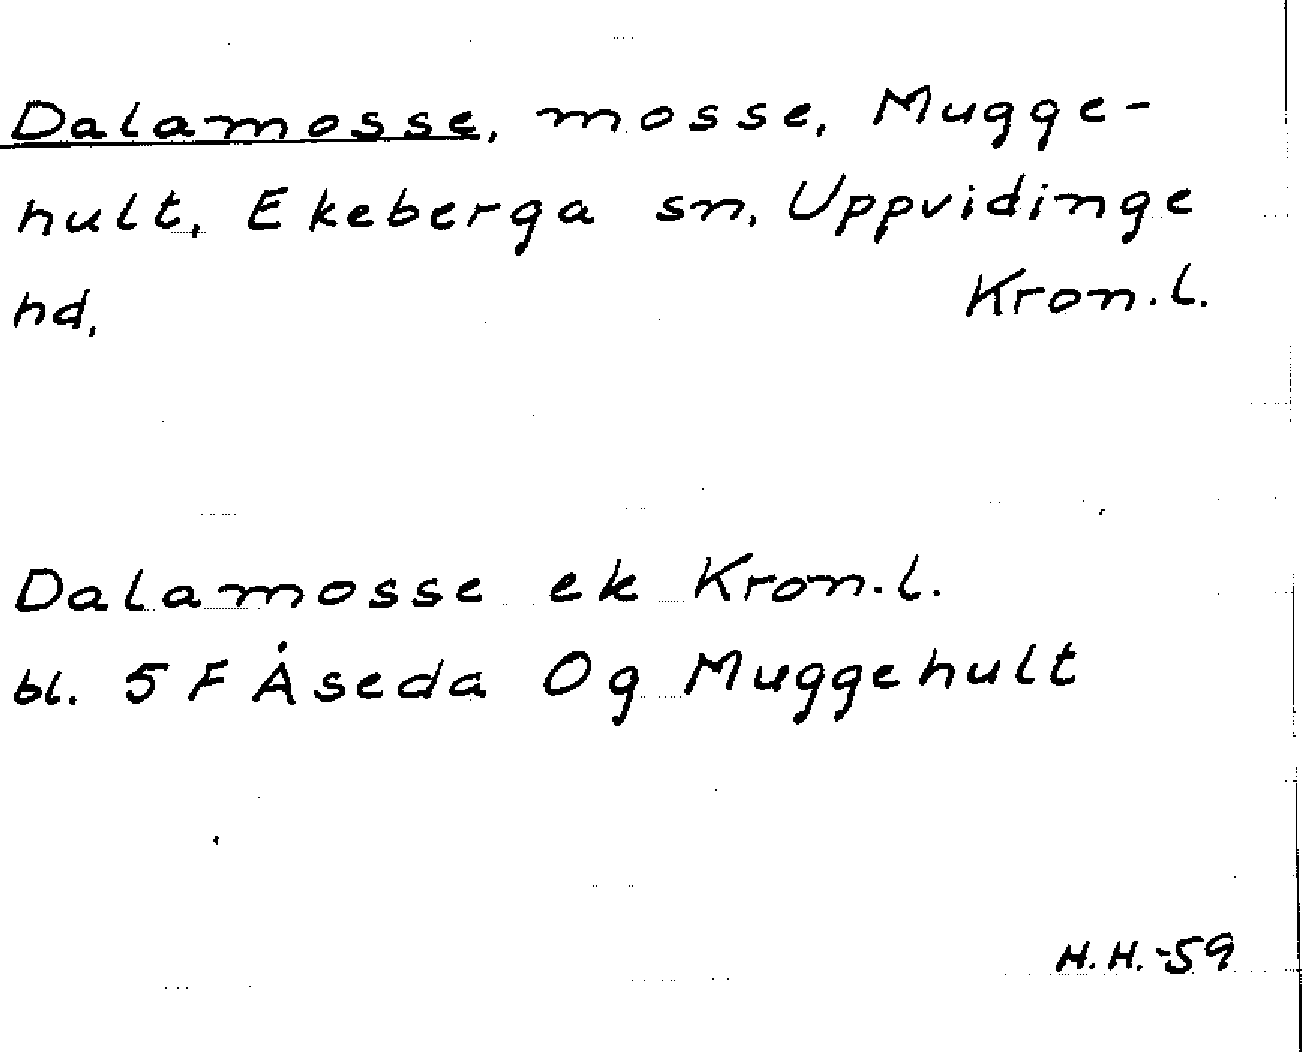 Dalamosse, mosse, Mugge-
hult, Ekeberga sn, Uppvidinge
hd, Kron.l.
Dalamosse ek Kron.l.
bl. 5F Åseda Og Muggehult
H.H.-59